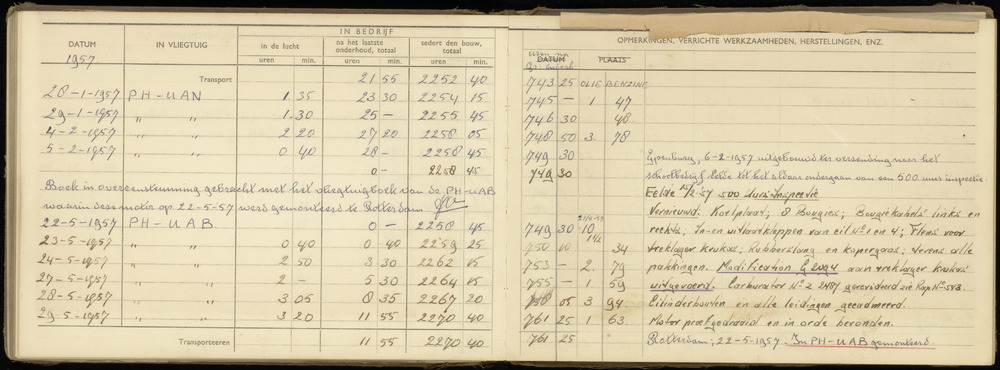 IN BEDRIJF
DATUM IN VLIEGTUIG in de lucht na het laatste onderhoud, totaal sedert den bouw, totaal
1957 uren min. uren min. uren min.
Transport 21 55 2252 40
28-1-1957 PH-UAN 1 35 23 30 2254 15
29-1-1957 " " 1-30 25 — 2255 45
4-2-1957 " " 2 20 27 20 2258 05
5-2-1957 " " 0 40 28 — 2258 45
0 — 2258 45
Boek in overeenstemming gebracht met het vliegtuigboek van de PH-UAB
waarin deze motor op 22-5-57 werd gemonteerd te Rotterdam
22-5-1957 PH-UAB 0 — 2258 45
23-5-1957 " " 0 40 0 40 2259 25
24-5-1957 " " 2 50 3 30 2262 15
27-5-1957 " " 2 — 5 30 2264 15
28-5-1957 " " 3 05 8 35 2267 20
29-5-1957 " " 3 20 11 55 2270 40
Transporteeren 11 55 2270 40
OPMERKINGEN, VERRICHTE WERKZAAMHEDEN, HERSTELLINGEN, ENZ.
DATUM PLAATS
743 25 OLIE BENZINE
745 — 1 47
746 30 48
748 50 3. 78
749 30 Ypenburg, 6-2-1957 uitgebouwd ter verzending naar het
749 30 schoolbedrijf Eelde tot het aldaar ondergaan van een 500 uur inspectie.
Eelde 500 uurs-Inspectie
Vernieuwd: Koelplaat; 8 Bougies; Bougiekabels links en
749 30 10 rechts; In- en uitlaatkleppen van cil No 1 en 4; Flens voor
750 10 34 treklager krukas; Rubberslang en kopergaas; tevens alle
753 — 2. 79 pakkingen. Modification G 2094 aan treklager krukas
755 — 1 59 uitgevoerd. Carburator No 2 2487 gereviseerd zie Rap No 543.
758 05 3 94. Cilinderbouten en alle leidingen gecadmeerd.
761 25 1 63. Motor proefgedraaid en in orde bevonden.
761 25 Rotterdam, 22-5-1957. In PH-UAB gemonteerd.